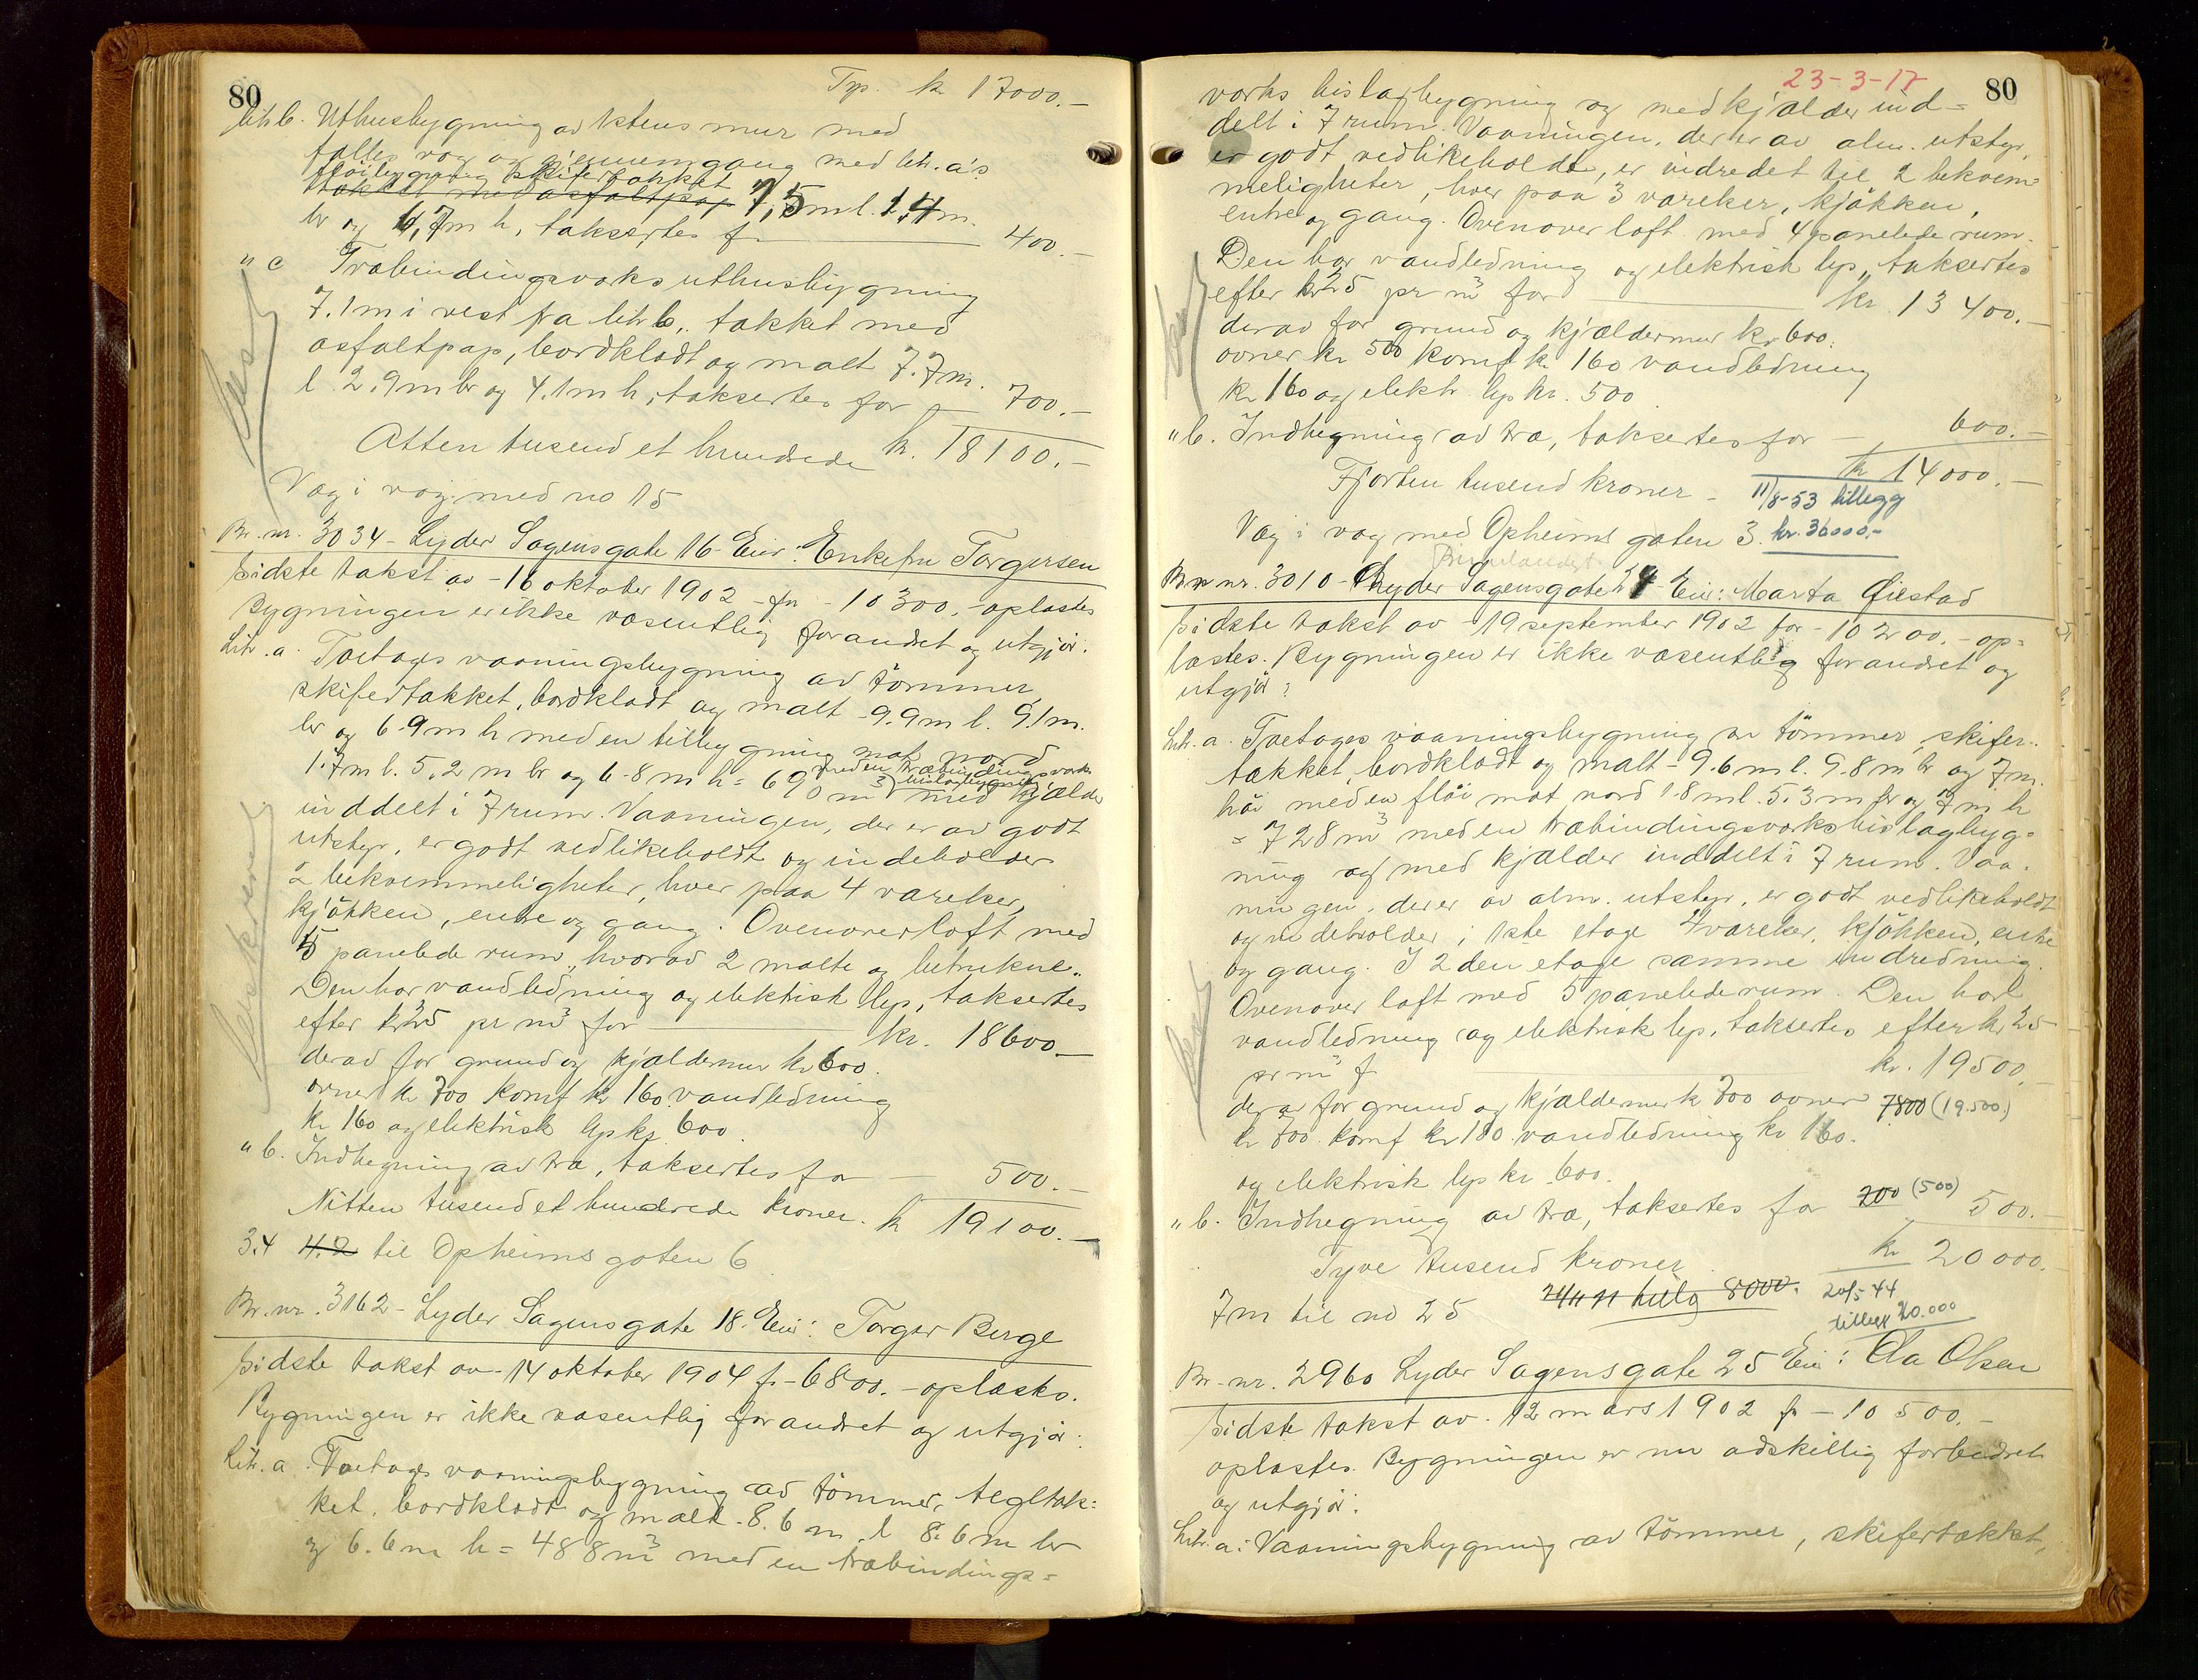 80
Trp. kr 17000.-
Litr b. Uthusbygning av 1stens mur med
fælles væg og gjennemgang med litr. a's
fløibygning skifertækket
tækket med asfaltpap 7,5 m l. 2,4 m.
br og 6,7 m h, taksertes for 400.-
" c Træbindingsværks uthusbygning
7.1 m i vest fra litr b, tækket med
asfaltpap, bordklædt og malt 7.7 m.
l. 2.9 m br og 4.1 m h, taksertes for 700.-
Atten tusend et hundrede kr. 18100.-
Væg i væg med no 15
Br. nr. 3034 - Lyder Sagensgate 16 - Eier: Enkefru Torgersen
Sidste takst av - 16 oktober 1902 - for - 10300.- oplæstes
Bygningen er ikke væsentlig forandret og utgjør:
Litr. a. Toetages vaaningsbygning av tømmer
skifertækket, bordklædt og malt - 9.9 m l. 9.1 m.
br og 6.9 m h med en tilbygning mot nord
1.7 m l. 5.2 m br og 6.8 m h = 690 m³ med kjælder
med en træbindingsværks
bislagbygning
inddelt i 7 rum. Vaaningen, der er av godt
utstyr, er godt vedlikeholdt og indeholder
2 bekvemmeligheter, hver paa 4 værelser,
kjøkken, entre og gang. Ovenover loft med
5 panelede rum, hvorav 2 malte og betrukne.
Den har vandledning og elektrisk lys, taksertes
efter kr 25 pr m³ for kr. 18600.-
derav for grund og kjældermur kr 600.
ovner kr 700 komf kr 160 vandledning
kr 160 og elektrisk lys kr 600
" b. Indhegning av træ, taksertes for - 500.-
Nitten tusend et hundrede kroner. kr 19100.-
3.4 4.2 til Opheimsgaten 6
Br. nr. 3162 - Lyder Sagensgate 18. Eier: Torger Berge
Sidste takst av - 14 oktober 1904 for - 6800. - oplæstes.
Bygningen er ikke væsentlig forandret og utgjør:
Litr. a. Toetages vaaningsbygning av tømmer, tegltæk=
ket, bordklædt og malt - 8.6 m. l 8.6 m br
og 6.6 m h = 488 m³ med en træbindings=
23-3-17
80
værks bislagbygning og med kjælder ind=
delt i 7 rum. Vaaningen, der er av alm. utstyr,
er godt vedlikeholdt, er indredet til 2 bekvem=
meligheter, hver paa 3 værelser, kjøkken,
entre og gang. Ovenover loft med 4 panelede rum.
Den har vandledning og elektrisk lys, taksertes
efter kr 25 pr m³ for kr. 13400.-
derav for grund og kjældermur kr 600.
ovner kr 500 komf kr 160 vandledning
kr 160 og elektr. lys kr. 500
" b. Indhegning av træ, taksertes for - 600.-
Fjorten tusend kroner - kr 14000.-
11/8-53 tillegg
kr. 36000.-
Væg i væg med Opheims gaten 3.
Br. nr. 3010 - Lyder Sagensgate 24 Eier: Marta Øiestad
Sidste takst av - 19 september 1902 for - 10200. - op=
læstes. Bygningen er ikke væsentlig forandret og
utgjør:
Litr. a. Toetages vaaningsbygning av tømmer, skifer=
tækket, bordklædt og malt = 9.6 m l. 9.8 m br og 7 m.
høi med en fløi mot nord 1.8 m l. 5.3 m br og 7 m h
= 728 m³ med en træbindingsværks bislagbyg=
ning og med kjælder inddelt i 7 rum. Vaa=
ningen, der er av alm. utstyr, er godt vedlikeholdt
og indeholder i 1ste etage 4 værelser, kjøkken, entre
og gang. I 2den etage samme indredning.
Ovenover loft med 5 panelede rum. Den har
vandledning og elektrisk lys, taksertes efter kr 25
pr m³ for kr. 19500.-
derav for grund og kjældermur kr 700 ovner 7800 (19.500)
kr 700. komf kr 180 vandledning kr 160.
og elektrisk lys kr. 600.
" b. Indhegning av træ, taksertes for 200 (500) 500.-
Tyve tusend kroner kr 20000.-
7 m til no 25 8000. 20/5 44
tillegg 20.000
Br. nr. 2960 Lyder Sagensgate 25 Eier: Ola Olsen
Sidste takst av - 12 mars 1902 for - 10500.-
oplæstes. Bygningen er nu adskillig forbedret
og utgjør:
Litr. a. Vaaningsbygning av tømmer, skifertækket,